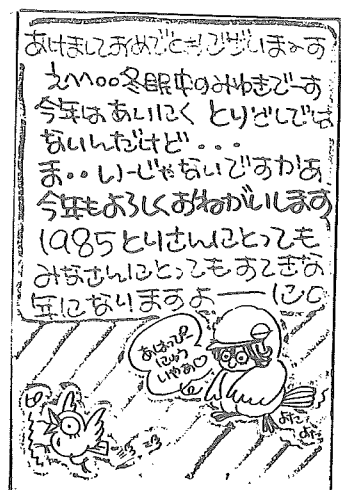 あけましておめでとうございまーす
え〜〜〜。冬眠中のみゆきでーす
今年はあいにく とりどしでは
ないんだけど・・・
ま・・いーじゃないですかあ
今年もよろしくおねがいします
1985とりさんにとっても
みなさんにとってもすてきな
年になりますよーーに。
あはっぴー
にゅう
いやあ♡
よた
よた